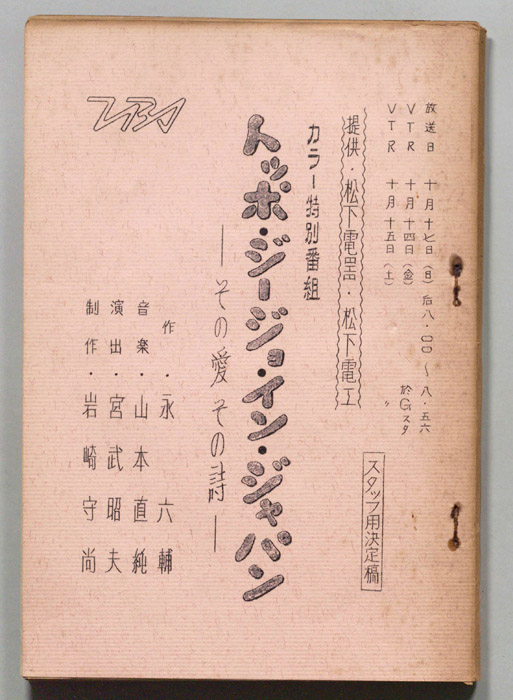 放送日 十月十七日(日)后八・〇〇～八・五六
VTR 十月十四日(金) 於Gスタ
VTR 十月十五日(土) 〃
提供・松下電器・松下電工
スタッフ用決定稿
カラー特別番組
トッポ・ジージョ・イン・ジャパン
―その愛 その詩―
作・永 六輔
音楽・山本直純
演出・宮武昭夫
制作・岩崎守尚